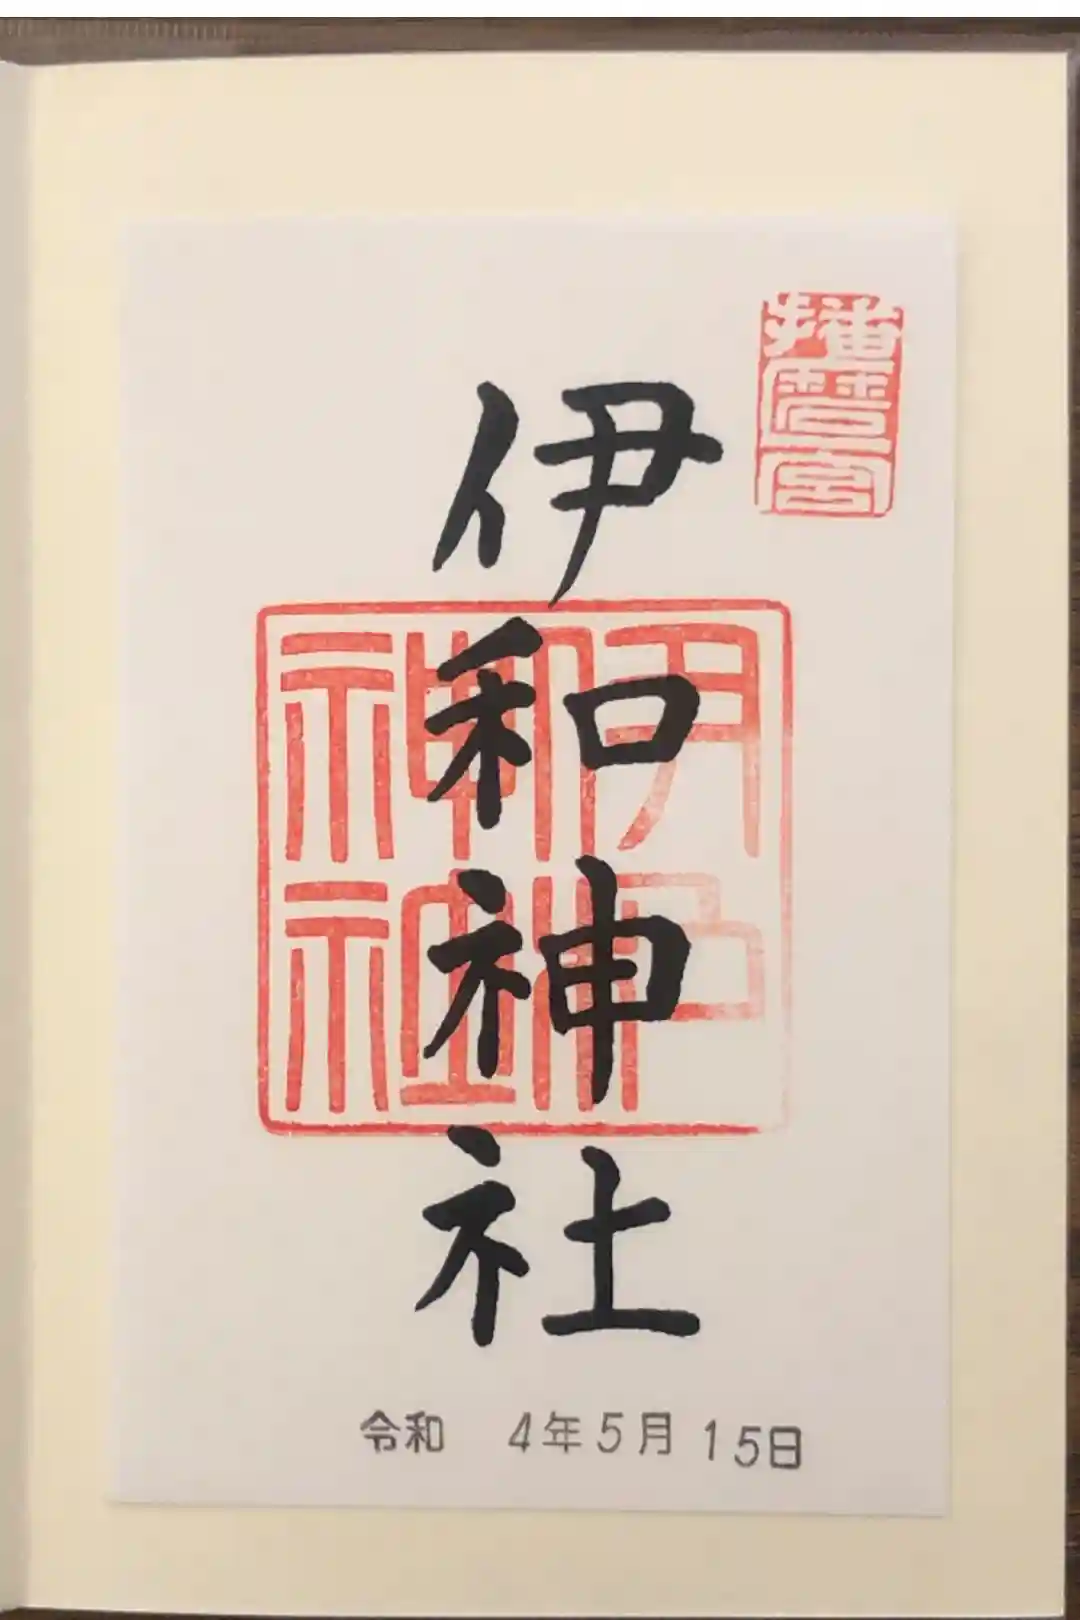 播磨一宮
伊和神社
伊和
神社
令和 4年5月15日